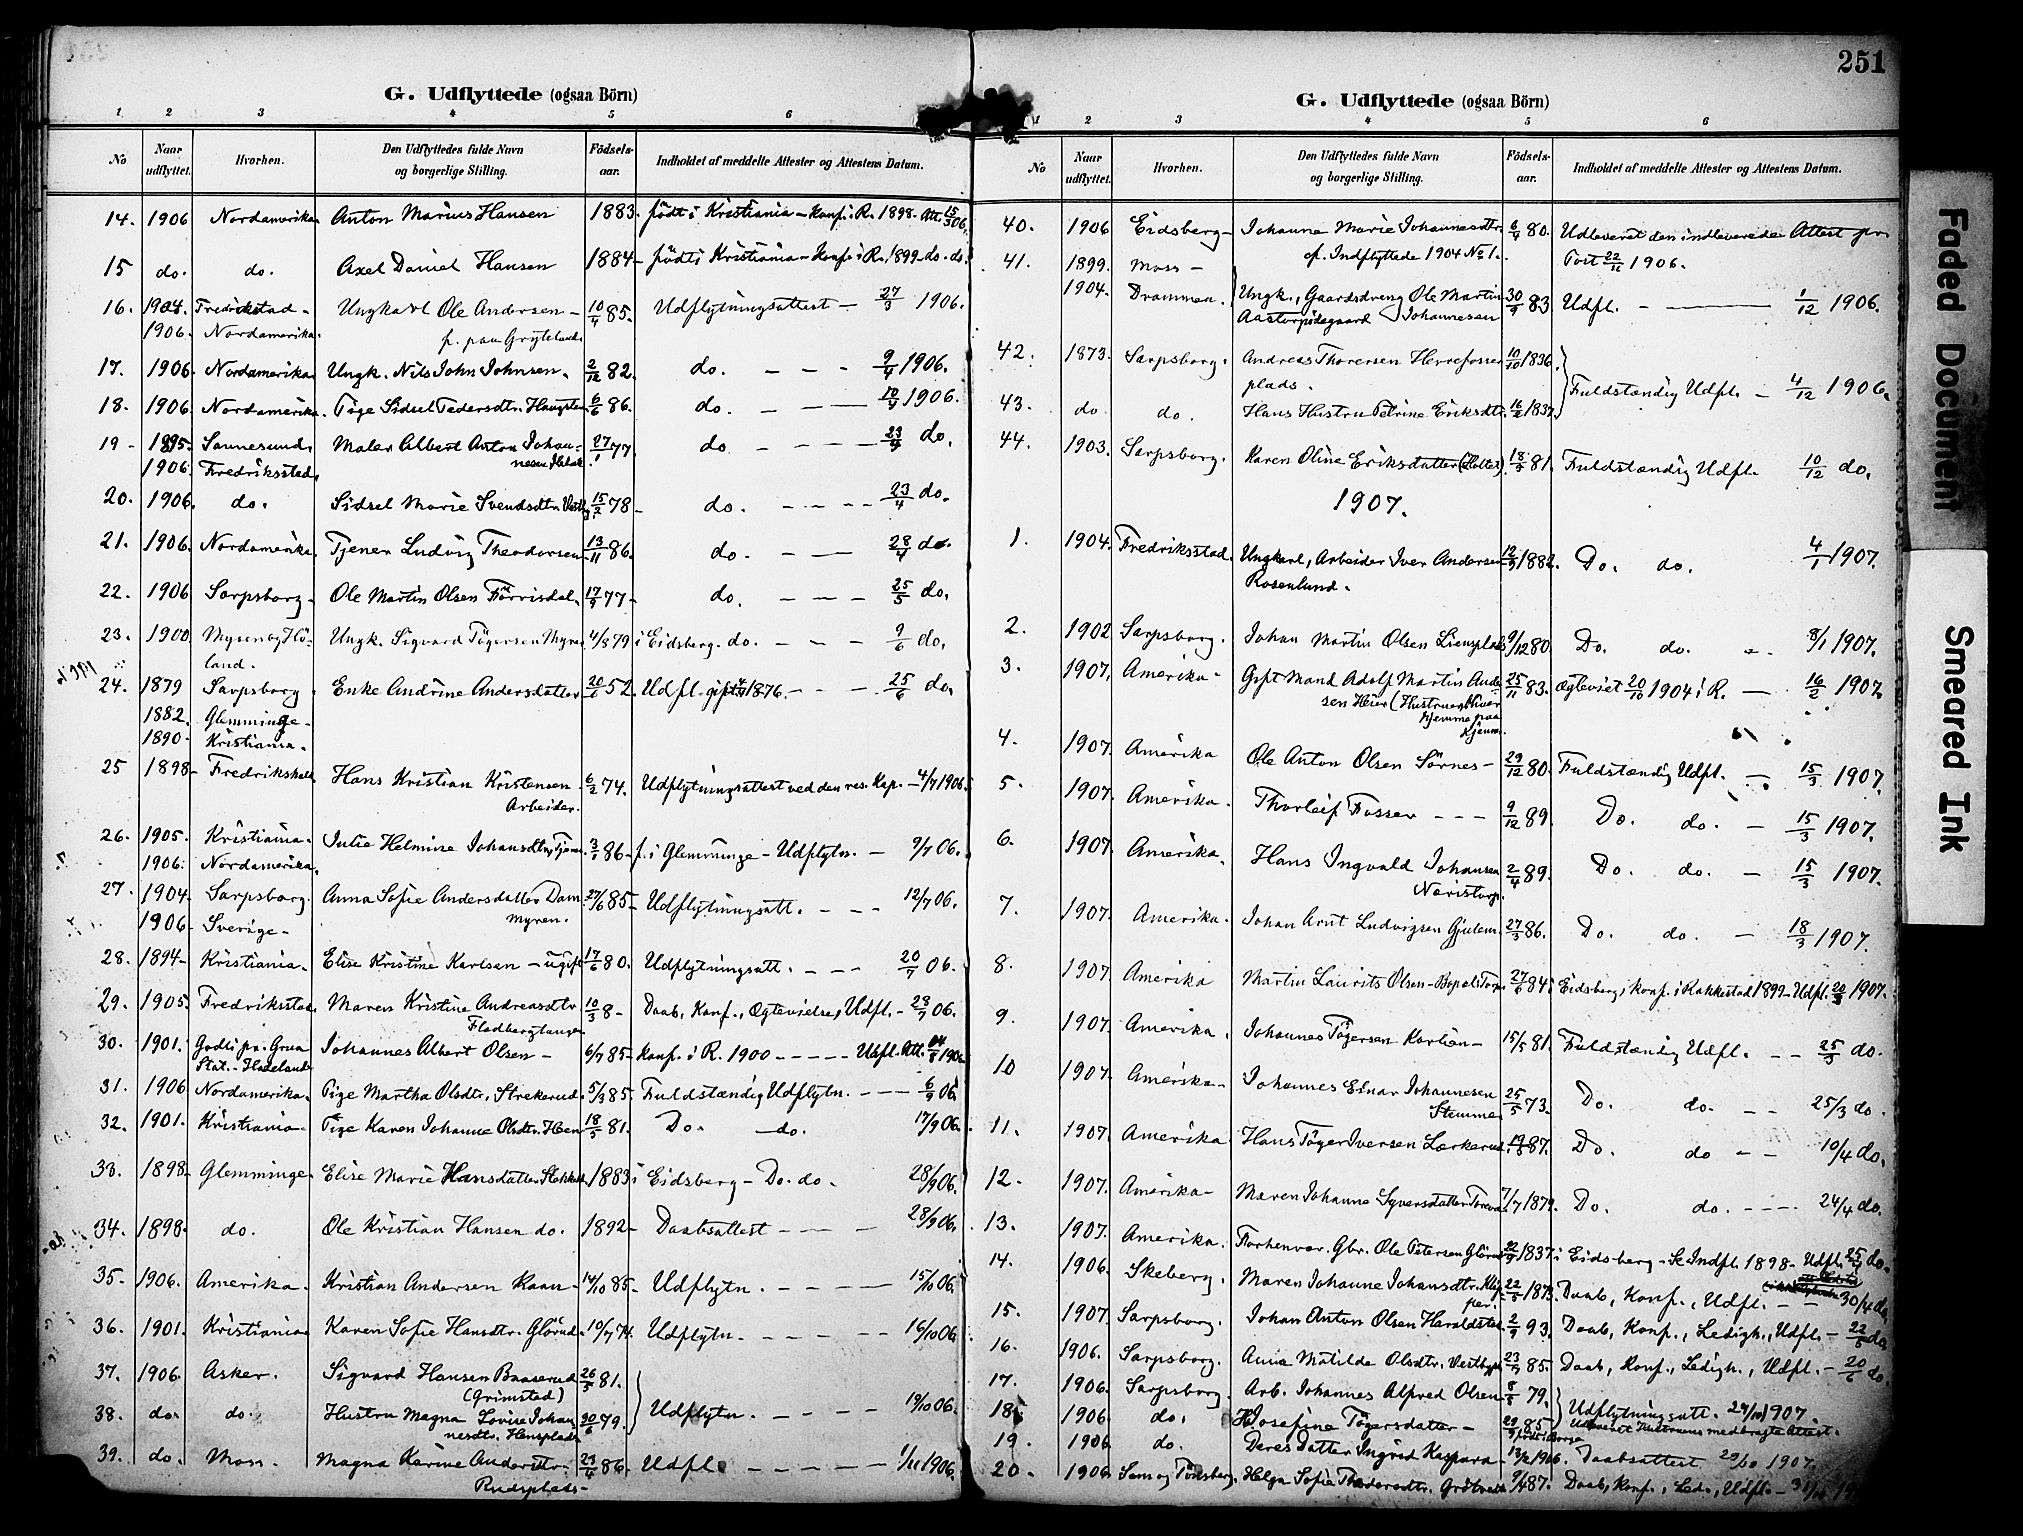 251
G. Udflyttede (ogsaa Börn)
1 2 3 4 5 6
No Naar udflyttet. Hvorhen. Den Udflyttedes fulde Navn og borgerlige Stilling. Födsels-aar. Indholdet af meddelte Attester og Attestens Datum.
14. 1906 Nordamerika Anton Marius Hansen 1883. født i Kristiania - konf. i R. 1898. Att. 15/3 06.
15 do. do. Axel Daniel Hansen 1884 - født i Kristiania - Konf. i R. 1899 - do. do.
16. 1904. Fredrikstad - Ungkarl Ole Andersen - 10/4 85. Udflytningsattest - 27/3 1906.
1906. Nordamerika. f. paa Grytelund.
17. 1906. Nordamerika. Ungk. Nils John Johnsen. 2/12 82. do. - - - 9/4 1906.
18. 1906. Nordamerika. Pige Sidsel Pedersdtr. 6/6 86. do. - - - 1906.
19 - 1895. Sannesund. Maler Albert Anton Johan- 27/1 77 do - - - 23/4 do.
1906. Fredriksstad. nesen
20. 1906. do. Sidsel Marie Svendsdtr. 15/2 78 - do. - - - - 23/4 do.
21. 1906. Nordamerika. Tjener Ludvig Theodorsen 13/11 86. do. - - 28/4 do.
22. 1906 Sarpsborg - Ole Martin Olsen Förrisdal. 17/9 77 - do. - - - 25/5 do.
23. 1900. Mysen og Hö- Ungk. Sigvard Tögersen Myren 4/3 79 i Eidsberg. do. - - - 9/6 do.
land.
24. 1879 Sarpsborg Enke Andrine Andersdatter 52. Udfl. gift 1876. - - - 25/6 do.
1882. Glemminge -
1890. Kristiania.
25 1898 - Fredrikshald Hans Kristian Kristensen 6/2 74. Udflytningsattest ved den res. Kap. - 4/7 1906.
Arbeider.
26. 1905. Kristiania. Julie Helmine Johansdtr. 86 - f. i Glemminge - Udflytn. - 9/7 06.
1906. Nordamerika.
27. 1904. Sarpsborg. Anna Sofie Andersdatter Dam 27/6 85 - Udflytningsatt. - - - 12/7 06.
1906 - Sverige - myren.
28. 1894 - Kristiania. Elise Kristine Karlsen - ugift 17/6 80. Udflytningsatt. - - - 20/7 06.
29. 1905. Fredriksstad. Maren Kristine Andreasdtr 10/3 8 - Daab, Konf., Ægtevielse, Udfl. - 28/7 06.
Fladbergtangen
30. 1901. Godli pr. Grua Johannes Albert Olsen - 6/7 85 - Konf. i R. 1900 - - - - Udfl. Att.
Stat. - Hadeland
31. 1906 Nordamerika. Pige Martha Olsdtr. Strekerud. 5/3 85. Fuldstændig Udflytn. - - - 6/9 06.
32. 1901. Kristiania - Pige Karen Johanne Olsdtr. Hen 18/5 81. Do. - do. 17/9 06.
33. 1898 - Glemminge. Elise Marie Hansdatter 1883 i Eidsberg - Do. do. 28/9 06.
34. 1898. do. Ole Kristian Hansen do. 1892 - Daabsattest - - - 28/9 06.
35. 1906. Amerika. Kristian Andersen Kaan - 14/10 85 - Udflytn. - - - 15/10 06.
36. 1901. Kristiania Karen Sofie Hansdtr. Glörud. 10/7 74. Udflytn. - - - - 16/10 06
37. 1906 Asker. Sigvard Hansen Baaserud 26/5 81.
(Grimstad)
38. do. do. Hustru Magna Lovise Johan 79. Udflytn. - - - - 19/10 06.
nesdtr. Hensplads
39. do Moss. Magna Karine Andersdtr. 23/4 86 - Udfl. - - - - - 1/11 1906.
Rudsplads -
G. Udflyttede (ogsaa Börn)
1 2 3 4 5 6
No Naar udflyttet. Hvorhen. Den Udflyttedes fulde Navn og borgerlige Stilling. Födsels-aar. Indholdet af meddelte Attester og Attestens Datum.
40. 1906 Eidsberg - Johanne Marie Johannesdtr. 80. Udleveret den indleverede Attest pr.
cf. Indflyttede 1904 No 1. Post 22/11 1906.
41. 1899. Moss -
1904. Drammen. Ungk., Gaardsdreng Ole Martin 30/9 83 Udfl. - 1/12 1906.
Aastorpødegaard Johannesen
42. 1873. Sarpsborg. Andreas Thoresen Herrefosser 10/10 1836.
plads. Fuldstændig Udfl. - 4/12 1906.
43. do do. Hans Hustru Petrine Eriksdtr. 16/2 1837.
44. 1903. Sarpsborg. Karen Oline Eriksdatter 81. Fuldstændig Udfl. 10/12 do.
1907.
1. 1904. Fredriksstad Ungkarl, Arbeider Iver Andersen 1882. Do. do. 4/1 1907.
Rosenlund.
2. 1902 Sarpsborg. Johan Martin Olsen Liensplads 9/12 80. Do. do. - 8/1 1907.
3. 1907. Amerika - Gift Mand Adolf Martin Ander- 25/11 83. Ægteviet 20/10 1904 i R. - 16/2 1907
sen Heier (Hustruen bliver
hjemme paa
Hjemm.
4. 1907. Amerika Ole Anton Olsen Sörnes - 29/12 80. Fuldstændig Udfl. - 15/3 1907.
5. 1907. Amerika. Thorleif Fosser - - - 9/12 89. Do. do. - 15/3 1907.
6. 1907. Amerika. Hans Ingvald Johansen 2/4 89. Do. do. - 15/3 1907.
Naristorp.
7. 1907. Amerika. Johan Arnt Ludvigsen Gjulem. 27/3 86. Do. do. - 18/3 1907.
8. 1907. Amerika Martin Laurits Olsen - 27/6 84. i Eidsberg, konf. i Rakkestad 1899 - Udfl. 20/3 1907.
9. 1907. Amerika. Johannes Tögersen Karlien - 15/5 81. Fuldstændig Udfl. - - 25/3 do.
10 1907. Amerika - Johannes Einar Johannesen 25/5 73. Do. do. - - 25/3 do.
Stemme
11. 1907. Amerika Hans Töger Iversen Lerkerud. 87. Do. do - - 10/4 do.
12. 1907. Amerika - Maren Johanne Syversdatter 7/7 1879. Do. do. - - - 24/4 do.
13. 1907. Amerika. Forhenvær. Gbr. Ole Petersen Glörud 1837. i Eidsberg - Se Indfl. 1898 - Udfl. 25/4 do.
14. 1906. Skeberg. Maren Johanne Johansdtr. Klöp 22/5 1873. Daab, Konf., Udfl. - - 30/4 do.
per.
15. 1907. Sarpsborg. Johan Anton Olsen Haraldstad 2/9 93. Daab, Konf., Ledigh., Udfl. - 22/5 do.
16. 1906. Sarpsborg. Anna Matilde Olsdtr. Vestby 23/7 85. Daab, Konf., Ledigh., Udfl. - 20/6 do.
17. 1906. Sarpsborg. Arb. Johannes Alfred Olsen 79.
Udflytningsatt. 24/10 1907
18. 1906. do. Josefine Tögersdatter - 85. Udleveret Hustruens medbragte Attest.
19. 1906. do. Deres Datter Ingrid Kaspara - 13/2 1906. Daabsattest 1907.
20. 1906. Sem og Tønsberg. Helga Sofie Theodorsdtr. 9/4 87. Daab, Konf., Led., Udfl. -
Faded Document
Smeared Ink